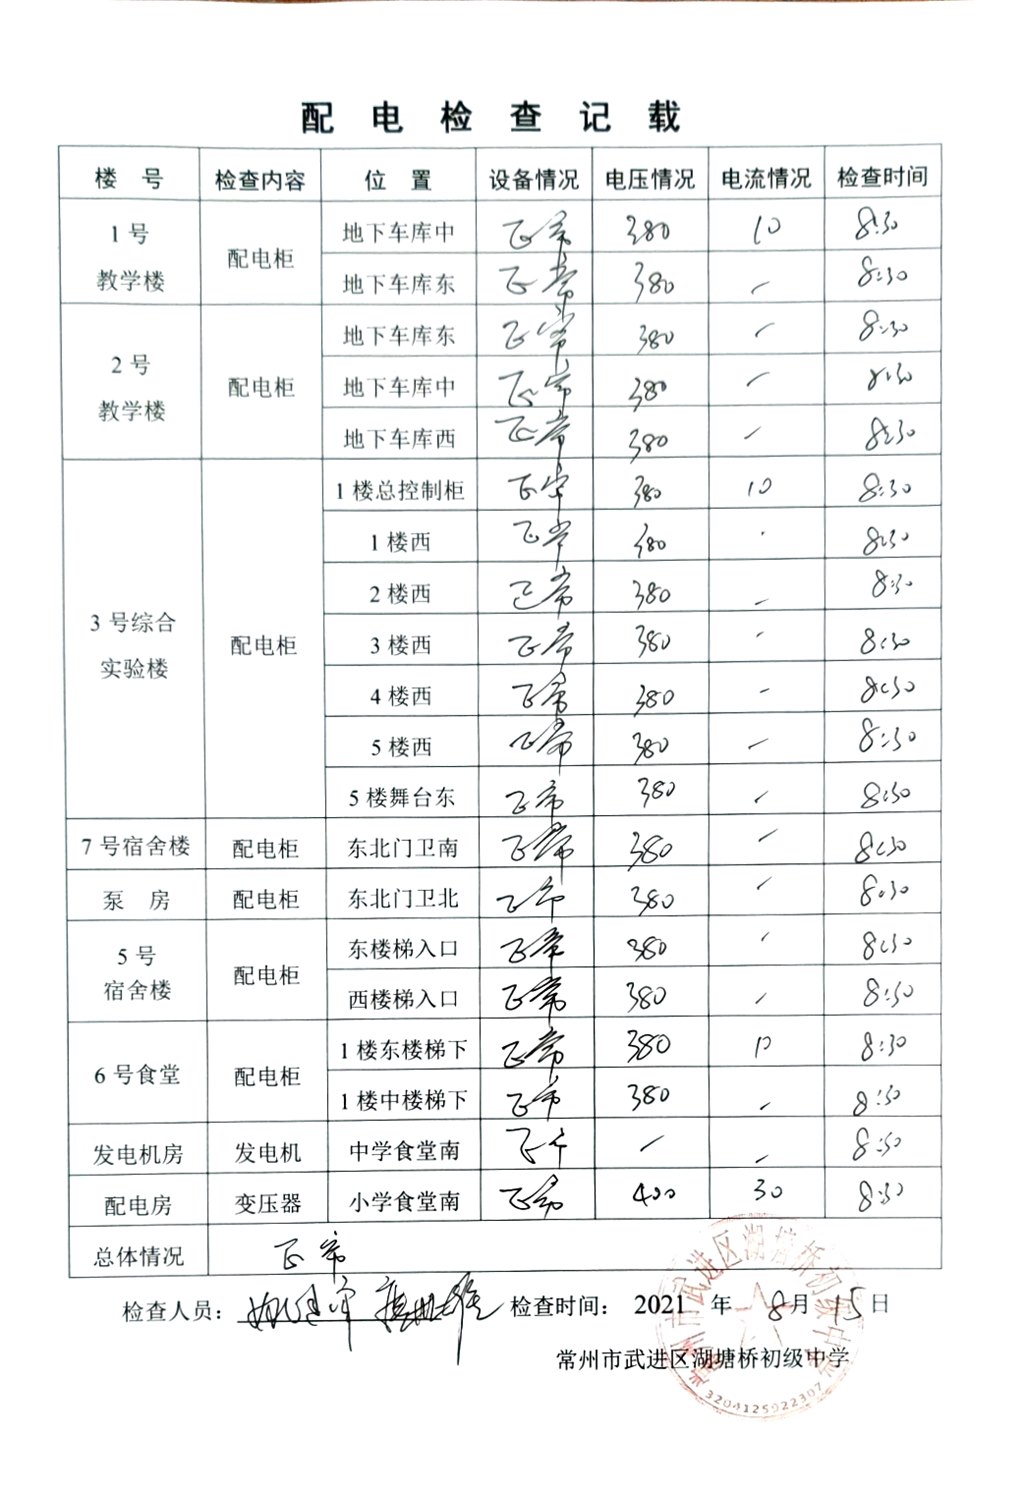 配电检查记载
楼号 检查内容 位置 设备情况 电压情况 电流情况 检查时间
1号教学楼 配电柜 地下车库中 正常 380 10 8:30
地下车库东 正常 380 - 8:30
2号教学楼 配电柜 地下车库东 正常 380 - 8:30
地下车库中 正常 380 - 8:30
地下车库西 正常 380 - 8:30
3号综合实验楼 配电柜 1楼总控制柜 正常 380 10 8:30
1楼西 正常 380 · 8:30
2楼西 正常 380 - 8:30
3楼西 正常 380 - 8:30
4楼西 正常 380 - 8:30
5楼西 正常 380 - 8:30
5楼舞台东 正常 380 - 8:30
7号宿舍楼 配电柜 东北门卫南 正常 380 - 8:30
泵房 配电柜 东北门卫北 正常 380 - 8:30
5号宿舍楼 配电柜 东楼梯入口 正常 380 - 8:30
西楼梯入口 正常 380 - 8:30
6号食堂 配电柜 1楼东楼梯下 正常 380 10 8:30
1楼中楼梯下 正常 380 - 8:30
发电机房 发电机 中学食堂南 正常 - - 8:30
配电房 变压器 小学食堂南 正常 400 30 8:30
总体情况 正常
检查人员： 检查时间： 2021 年 8月 15日
常州市武进区湖塘桥初级中学
常州市武进区湖塘桥初级中学
3204125022307